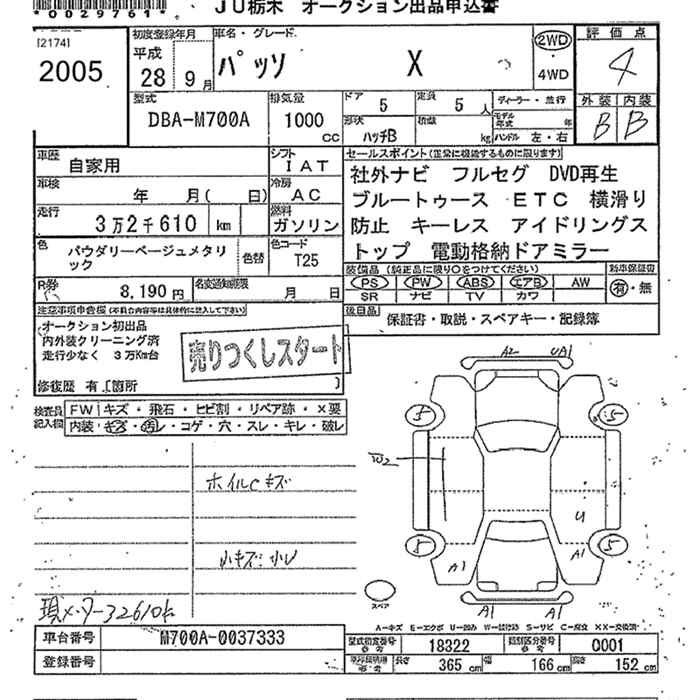 *0029761*
JU栃木 オークション出品申込書
[2174]
2005
初度登録年月
平成
28 9月
車名・グレード
パッソ X
2WD
4WD
評価点
4
外装 内装
B B
型式
DBA-M700A
排気量
1000 cc
ドア 5
定員 5人
形状 ハッチB
積載 kg
ディーラー・並行
モデル年式 年
ハンドル 左・右
車歴 自家用
シフト IAT
車検 年 月( 日)
冷房 AC
走行 3万2千610 km
燃料 ガソリン
色 パウダリーベージュメタリック
色替
色コード T25
R券 8,190円
名変通知期限 月 日
セールスポイント(正常に機能するものに限ります)
社外ナビ フルセグ DVD再生
ブルートゥース ETC 横滑り
防止 キーレス アイドリングス
トップ 電動格納ドアミラー
装備品(純正品に限り○をつけてください)
新車保証書
PS PW ABS エアB AW
SR ナビ TV カワ
有・無
後日品 保証書・取説・スペアキー・記録簿
注意事項申告欄(不具合内容は具体的に記入して下さい)
オークション初出品
内外装クリーニング済
走行少なく 3万Km台
売りつくしスタート
修復歴 有[箇所 ]
検査員記入欄
FW キズ・飛石・ヒビ割・リペア跡・×要
内装 キズ・汚レ・コゲ・穴・スレ・キレ・破レ
ホイルCキズ
小キズ小レ
現メーター32610k
A2 UA1
5 5
W2
U
5 5
A1 A1
A1 A1
スペア
A-キズ E-エクボ U-凹み W-波打跡 S-サビ C-腐食 XX-交換済
車台番号 M700A-0037333
登録番号
型式指定番号 参考 18322
類別区分番号 参考 0001
参考 長さ 365cm 幅 166cm 高さ 152cm